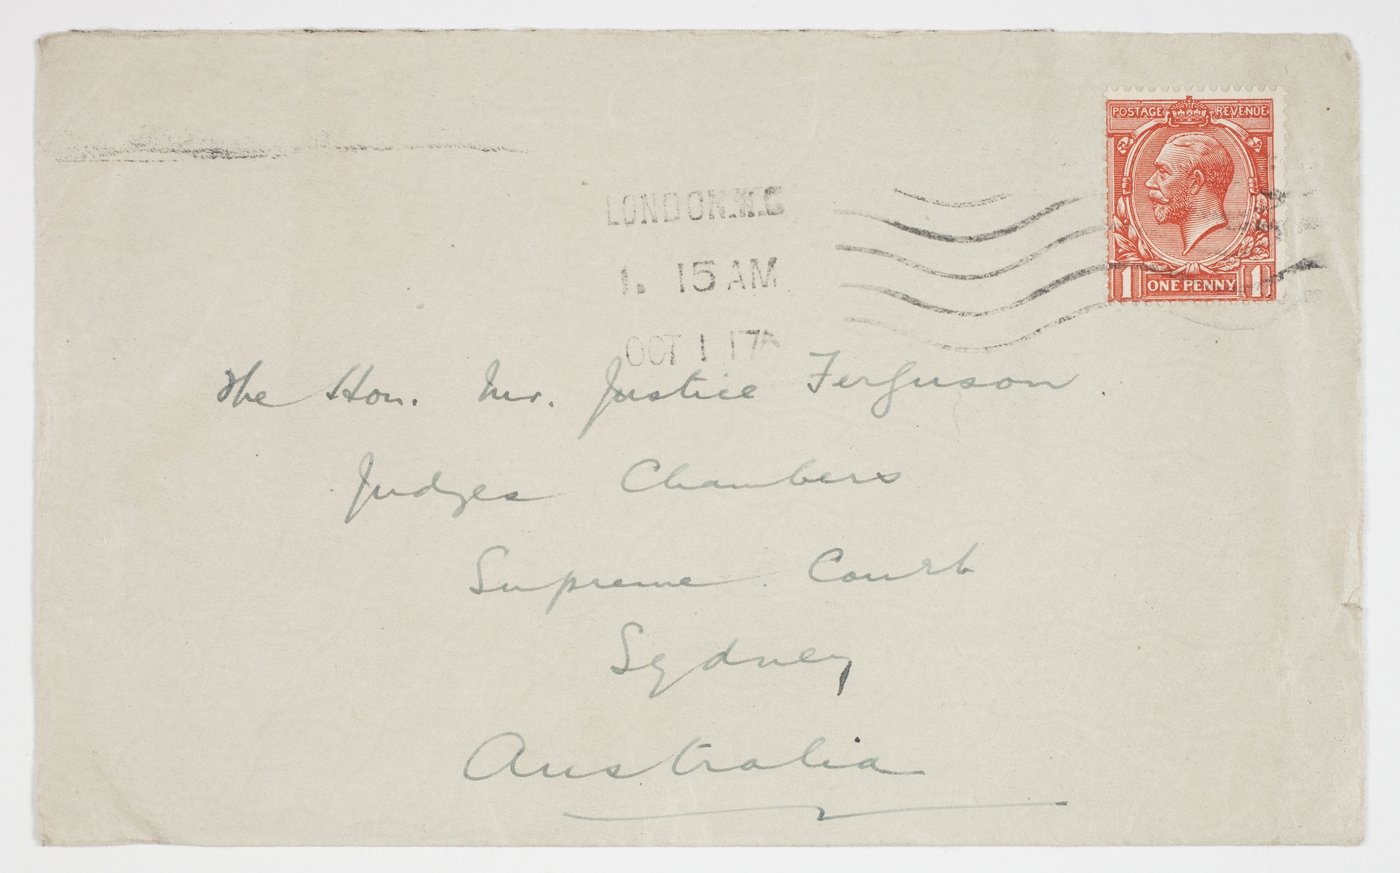 POSTAGE REVENUE
1 ONE PENNY 1
LONDON.W.C
1. 15 AM
OCT 1 17A
The Hon. Mr. Justice Ferguson
Judges Chambers
Supreme Court
Sydney
Australia